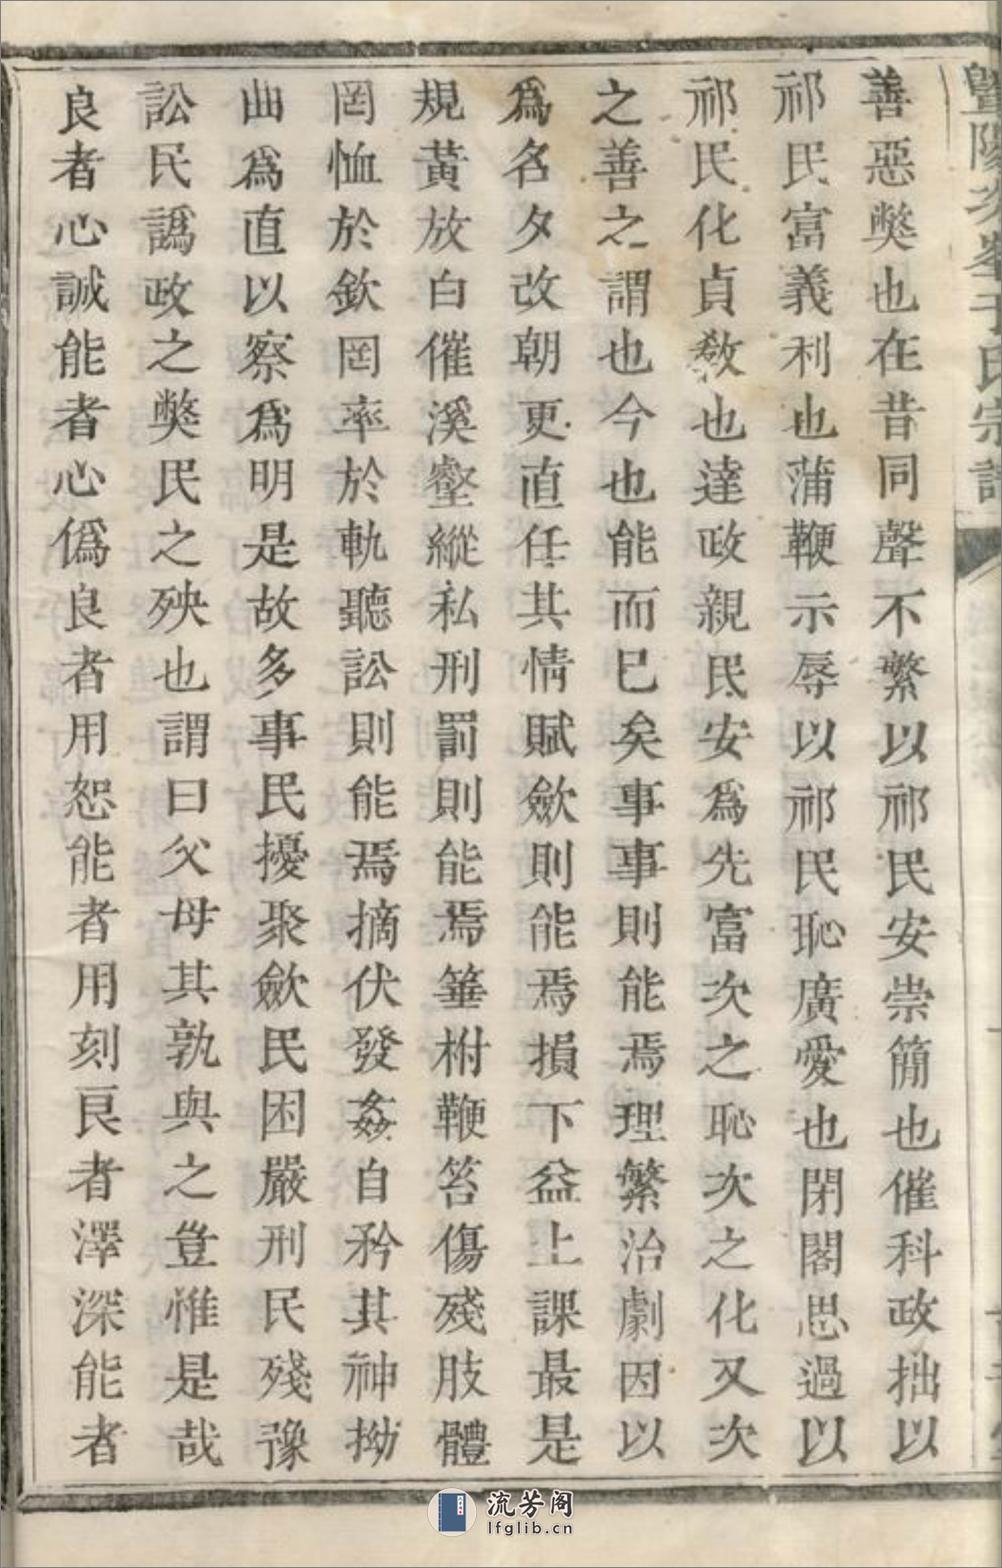 善惡獘也在昔同聲不繁以祁民安崇簡也催科政拙以
祁民富義利也蒲鞭示辱以祁民恥廣愛也閉閣思過以
祁民化貞敎也達政親民安為先富次之恥次之化又次
之善之謂也今也能而已矣事事則能焉理繁治劇因以
為名夕改朝更直任其情賦歛則能焉損下益上課最是
規黃放白催溪壑縱私刑罰則能焉箠柎鞭笞傷殘肢體
罔恤於欽罔率於軌聽訟則能焉摘伏發姦自矜其神拗
曲為直以察為明是故多事民擾聚歛民困嚴刑民殘豫
訟民譌政之獘民之殃也謂曰父母其孰與之豈惟是哉
良者心誠能者心偽良者用恕能者用刻良者澤深能者
流芳阁
lfglib.cn